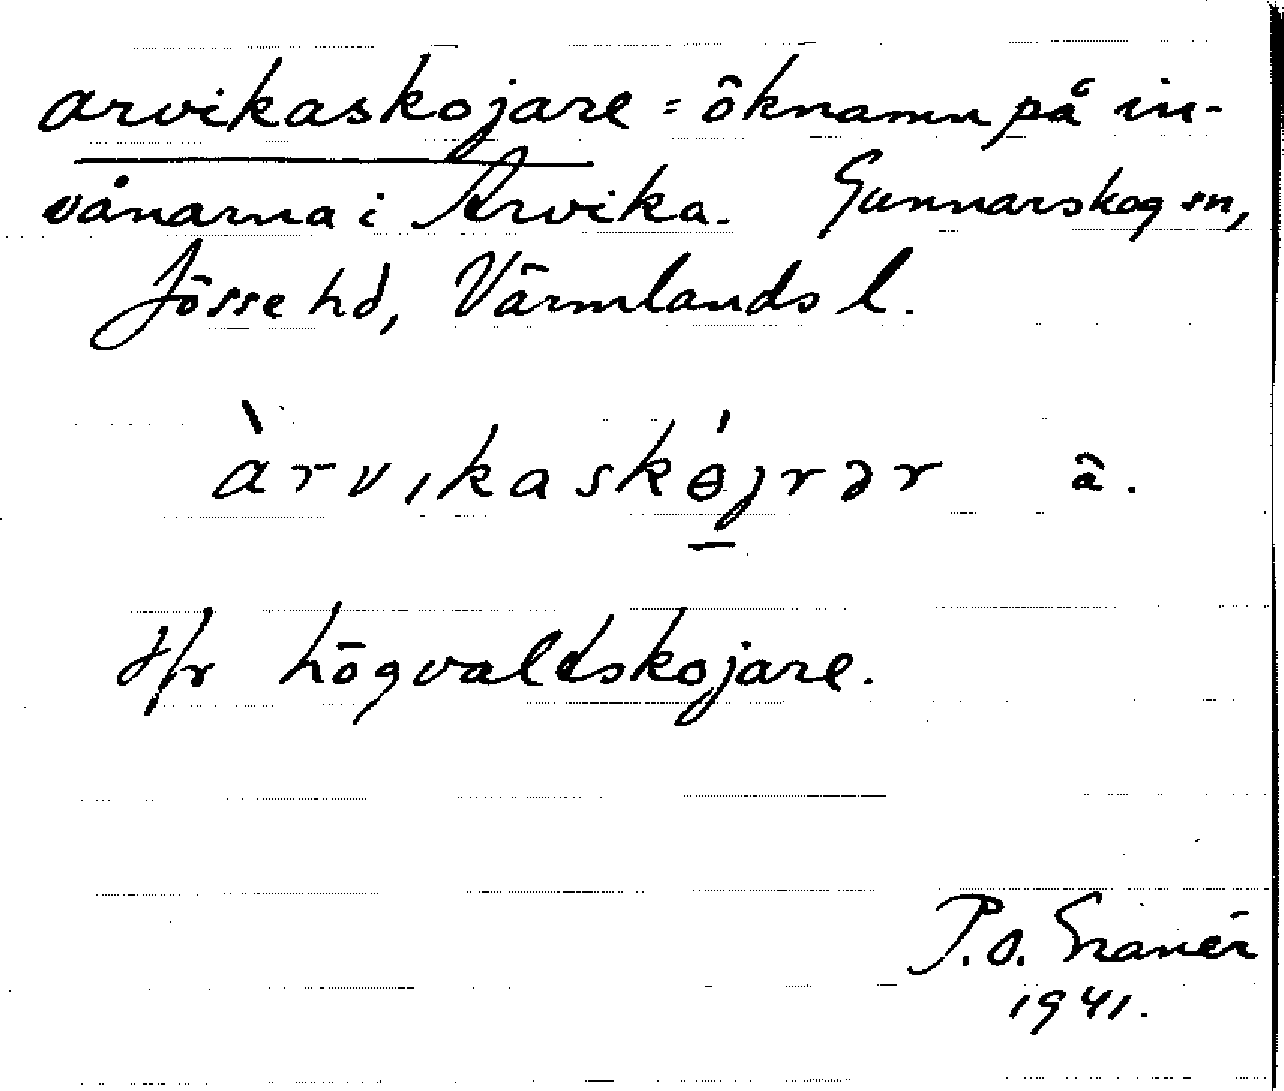 arvikaskojare = öknamn på in-
vånarna i Arvika. Gunnarskog sn,
Jösse hd, Värmlands l.
àrvıkaskɵ́jrər ä.
Jfr högvaldskojare.
P.O. Granér
1941.